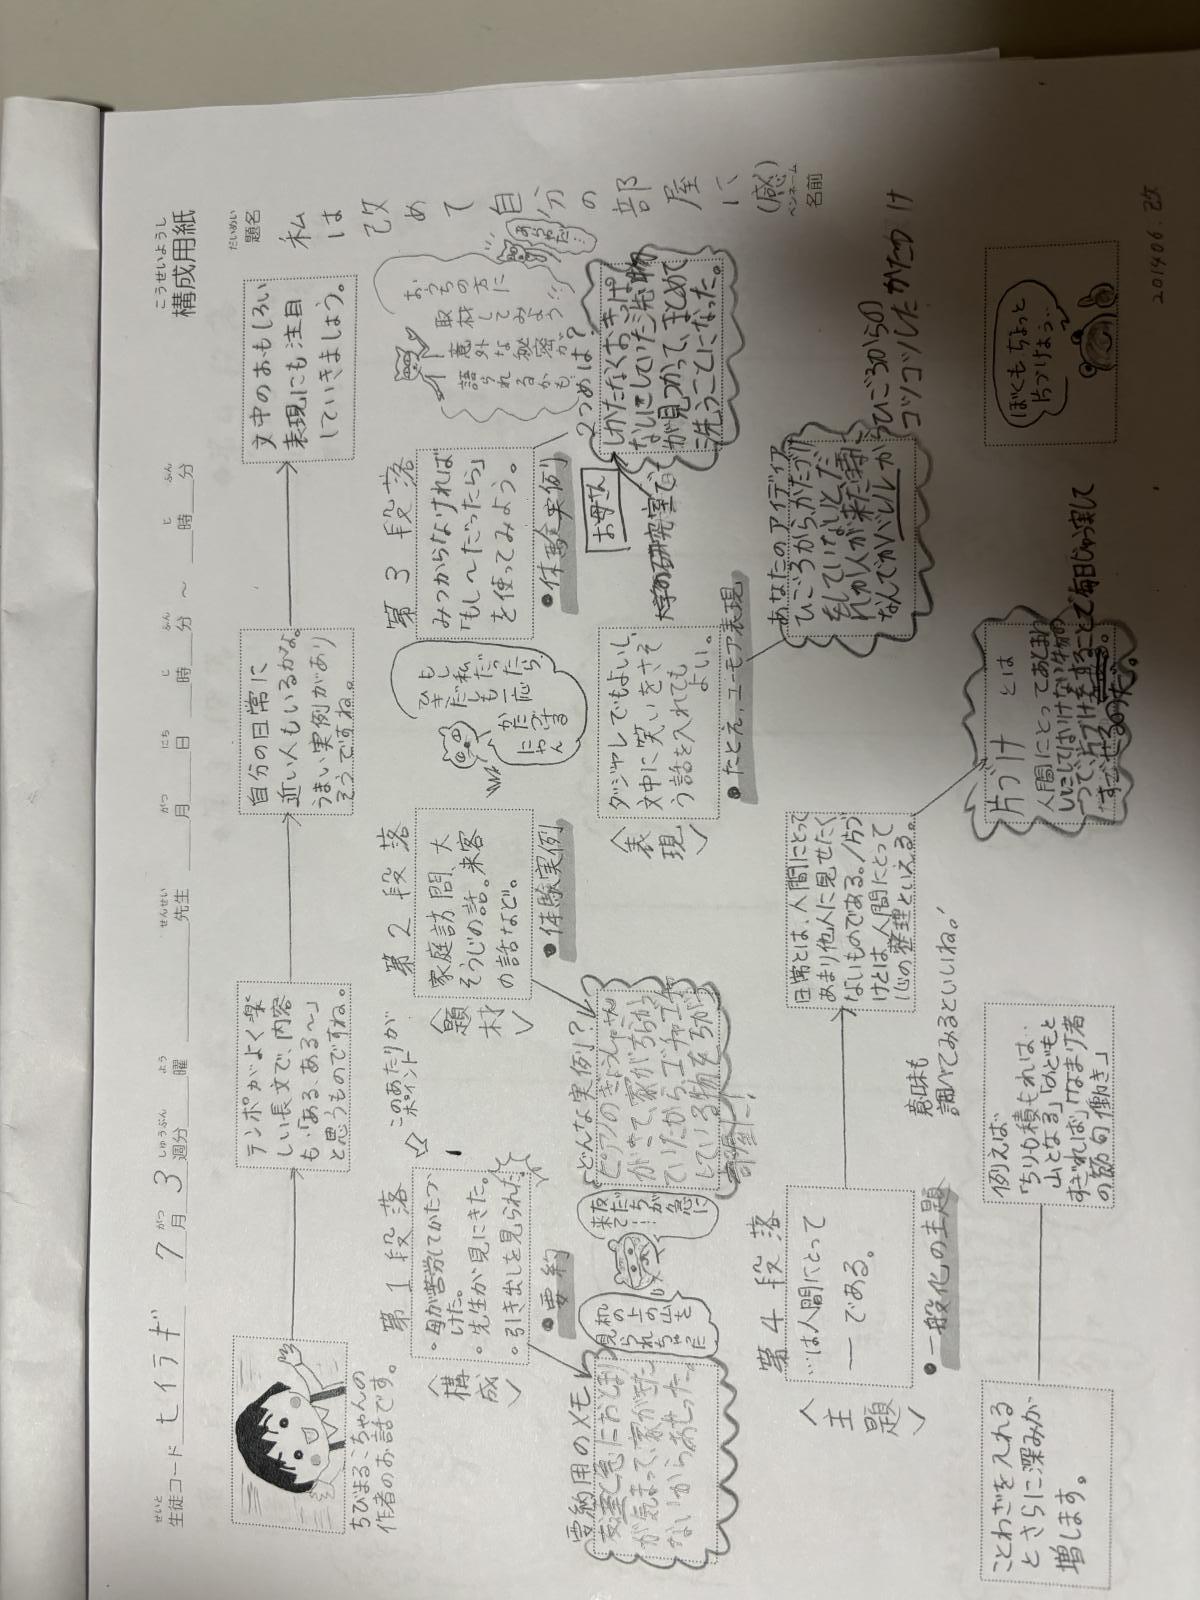 こうせいようし
構成用紙
せいと
生徒コード ヒイラギ 7月 3週分 曜 先生 月 日 時 分 ～ 時 分
がつ しゅうぶん よう せんせい がつ にち じ ふん じ ふん
だいめい
題名
私は改めて自分の部屋に(感)
ペンネーム
名前
ちびまる子ちゃんの
作者のお話です。
テンポがよく楽
しい長文で、内容
も「ある、ある〜」
と思うものですね。
自分の日常に
近い人もいるかな。
うまい実例があり
そうですね。
文中のおもしろい
表現にも注目
していきましょう。
第1段落
〈構成〉
・母が苦労してかたづ
けた。
・先生が見にきた。
・引き出しを見られた。
このあたりが
ポイント
●要約
要約用のメモ
友達と急におとまり
が気まって、家がきた
ないからあせった。
机の上の山を見られちゃった
友だちが急に来て…!
第2段落
〈題材〉
家庭訪問、大
そうじの話。来客
の話など。
●体験実例
どんな実例?
ていたから、ゴチャゴチャ
している物をちがう
部屋に!
もし私だったら、一応かたづけるにゃん
第3段落
みつからなければ
「もし〜だったら」
を使ってみよう。
●体験実例
おうちの方に
取材してみよう
意外な秘密が
語られるかも
2つめは?
お母さん
大学の研究室で
しかたなくおきっぱ
なしにしていた洗い物
が見つかって、まとめて
洗うことになった。
〈表現〉
ダジャレでもよいし、
文中に笑いをさそ
う話を入れても
よい。
●たとえ、ユーモア表現
あなたのアイディア
ひごろから、かたづけ
をしていないと、だ
れか人が来た時に
なんでかバレルカ
ひごろからの
コツコツしたかたづけ
第4段落
〈主題〉
…は人間にとって
── である。
●一般化の主題
日常とは、人間にとって
あまり他人に見せたく
ないものである。/片づ
けとは、人間にとって
心の整理といえる。
意味も
調べてみるといいね。
片づけ とは
人間にとってあとまわ
しにしてはいけない物の
一つで、片づけをすることで毎日じゅう実して
すごせるのだ。
ことわざを入れる
とさらに深みが
増します。
例えば
「ちりも積もれば、
山となる」「のどもと
すぎれば」「なまけ者
の節句働き」
ぼくもちょっと
片づけよう…
201406.改